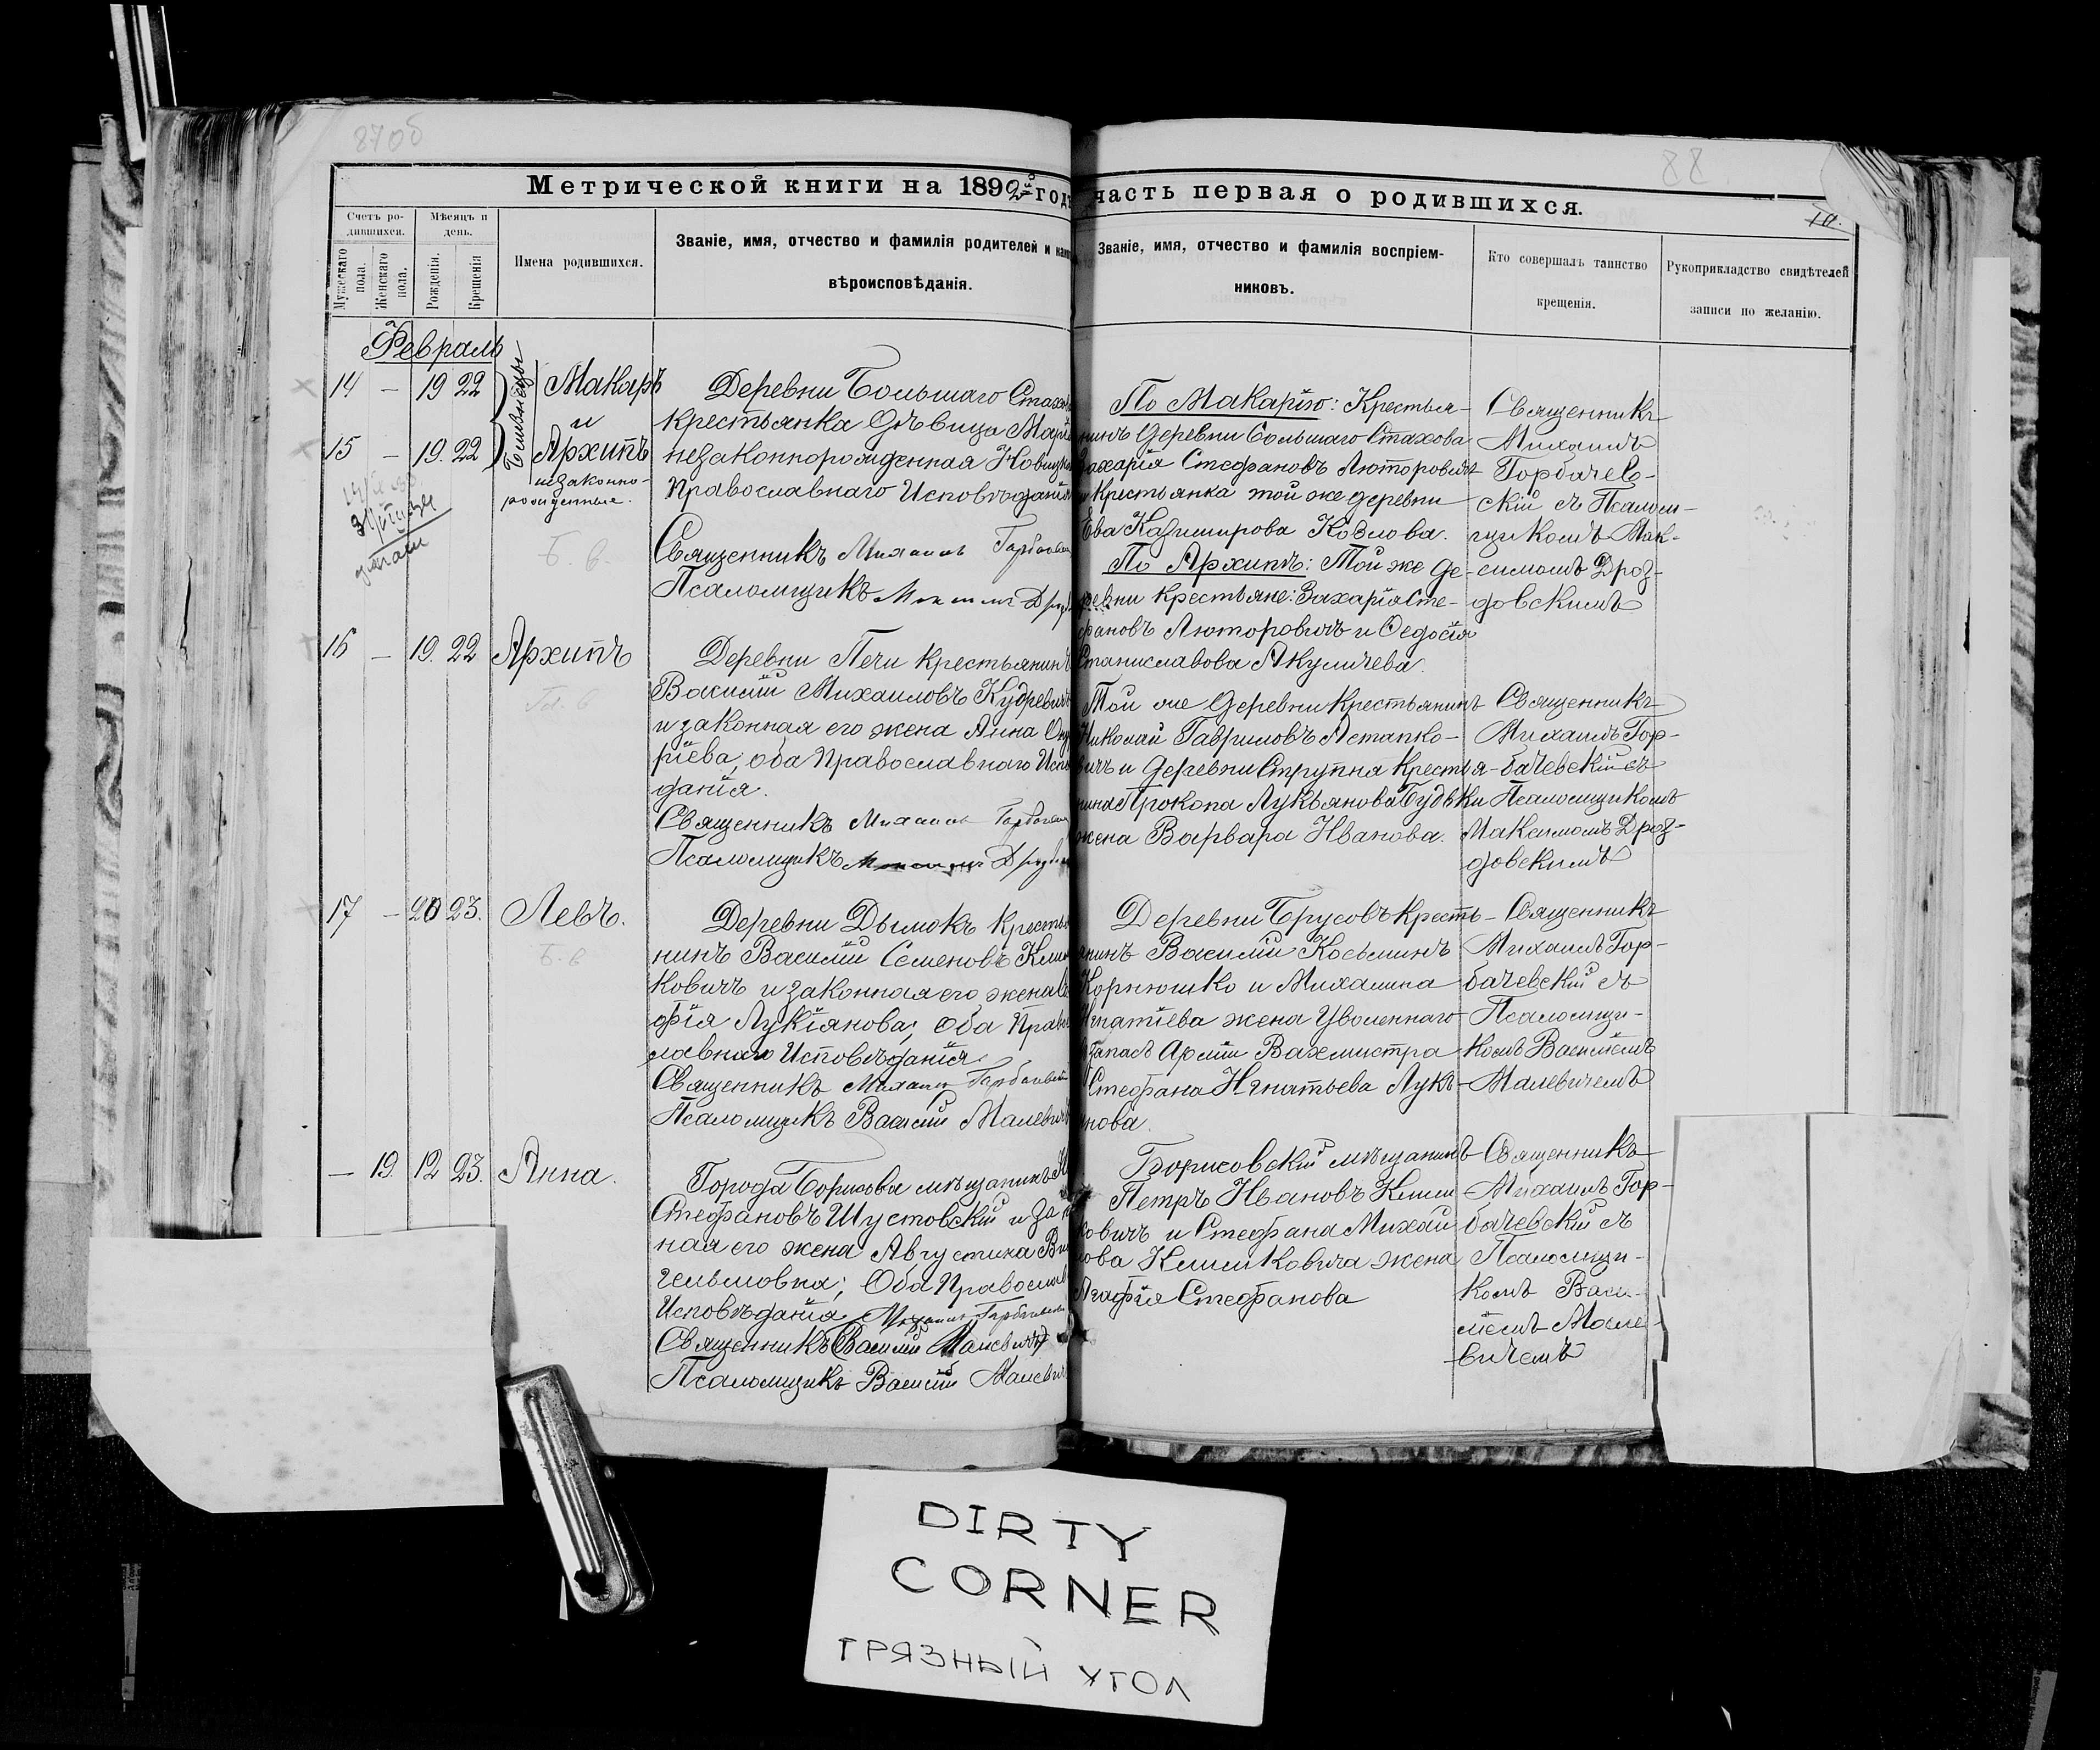 87об
88
Метрической книги на 1892й годъ
часть первая о родившихся.
10.
Счетъ ро-
дившихся.
Мѣсяцъ и
день.
Мужескаго
пола.
Женскаго
пола.
Рожденія.
Крещенія
Имена родившихся.
Званіе, имя, отчество и фамилія родителей и
вѣроисповѣданія.
Званіе, имя, отчество и фамилія воспріем-
никовъ.
Кто совершалъ таинство
крещенія.
Рукоприкладство свидѣтелей
записи по желанію.
Февраль
14 — 19 22
15 — 19. 22
Близнецы
Макаръ
и
Архипъ
незаконно-
рожденные.
Б. в.
Деревни Большаго Стахова
крестьянка дѣвица Марія
незаконнорожденная Новицкая
Православнаго Исповѣданія
Священникъ Михаилъ Горбачевскій
Псаломщикъ Максимъ Дрозд
По Макарію: Крестья-
нинъ деревни Большаго Стахова
Захарія Стефановъ Люторовичъ
и Крестьянка той же деревни
Ева Казимирова Козлова.
По Архипѣ: Той же де-
ревни крестьяне: Захарія Сте-
фановъ Люторовичъ и Ѳедосія
Станиславова Акуличева.
Священникъ
Михаилъ
Горбачев-
скій съ Псалом-
щикомъ Мак-
симомъ Дроз-
довскимъ
16 — 19. 22
Архипъ
Деревни Печи крестьянинъ
Василій Михаиловъ Кудревичъ
и законная его жена Анна
ріева, оба Православнаго Испо
данія.
Священникъ Михаилъ Горбачев
Псаломщикъ Максимъ Дроздов
Той же деревни крестьянинъ
Николай Гавриловъ Астапко-
вичъ и деревни Струпня крестья-
нина Прокопа Лукьянова Будьки
жена Варвара Иванова.
Священникъ
Михаилъ Гор-
бачевскій съ
Псаломщикомъ
Максимомъ Дроз-
довскимъ
17 — 20 23.
Левъ.
Б. в
Деревни Дымокъ крестья
нинъ Василій Семеновъ Клим
ковичъ и законная его жена
фія Лукіянова; оба Право
лавнаго Исповѣданія
Священникъ Михаилъ Горбачевскій
Псаломщикъ Василій Малевичъ
Деревни Брусовъ кресть-
янинъ Василій Косьминъ
Корнюшко и Михалина
Игнатіева жена Уволеннаго
въ запасъ Арміи Вахмистра
Стефана Игнатьева Лукъ-
янова.
Священникъ
Михаилъ Гор-
бачевскій съ
Псаломщи-
комъ Василіемъ
Малевичемъ
— 19. 12 23.
Анна.
Города Борисова мѣщанинъ
Стефановъ Шустовскій и закон
ная его жена Августина Виль
гельмовна; Оба Православ
Исповѣданія Михаилъ Горбачевскій
Священникъ (Василій Малевичъ)
Псаломщикъ Василій Малевичъ
Борисовскій мѣщанинъ
Петръ Ивановъ Клим
ковичъ и Стефана Михай
лова Климковича жена
Агафія Стефанова
Священникъ
Михаилъ Гор-
бачевскій съ
Псаломщи-
комъ Васи-
ліемъ Мале-
вичемъ
DIRTY
CORNER
ГРЯЗНЫЙ УГОЛ